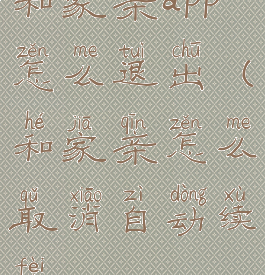 和家亲app
zěn me tuì chū
怎么退出（
hé jiā qīn zěn me
和家亲怎么
qǔ xiāo zì dòng xù
取消自动续
fèi